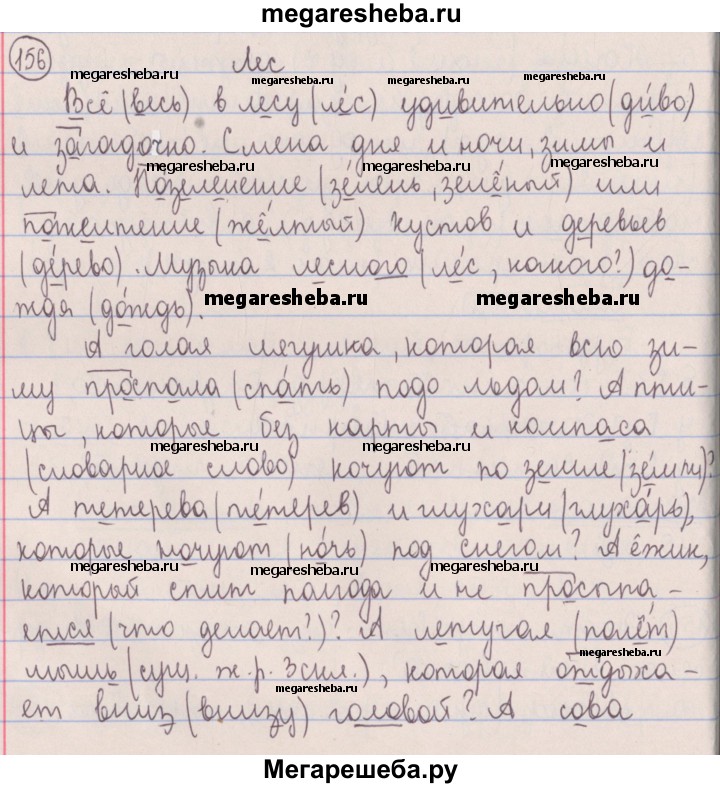 megaresheba.ru
156 Лес
megaresheba.ru megaresheba.ru megaresheba.ru
Всё (весь) в лесу (лес) удивительно (диво)
и загадочно. Смена дня и ночи, зимы и
megaresheba.ru megaresheba.ru megaresheba.ru
лета. Позеленение (зелень, зелёный) или
пожелтение (жёлтый) кустов и деревьев
(дерево). Музыка лесного (лес, какого?) до-
megaresheba.ru megaresheba.ru
ждя (дождь).
А голая лягушка, которая всю зи-
megaresheba.ru megaresheba.ru megaresheba.ru
му проспала (спать) подо льдом? А пти-
цы, которые без карты и компаса
megaresheba.ru megaresheba.ru
(словарное слово) кочуют по земле (земли)?
А тетерева (тетерев) и глухари (глухарь),
которые ночуют (ночь) под снегом? А ёжик,
megaresheba.ru megaresheba.ru megaresheba.ru
который спит полгода и не просыпа-
ется (что делает?)? А летучая (полёт)
мышь (сущ. ж. р. 3 скл.), которая отдыха-
megaresheba.ru
ет вниз (внизу) головой? А сова
megaresheba.ru megaresheba.ru megaresheba.ru
Мегарешеба.ру